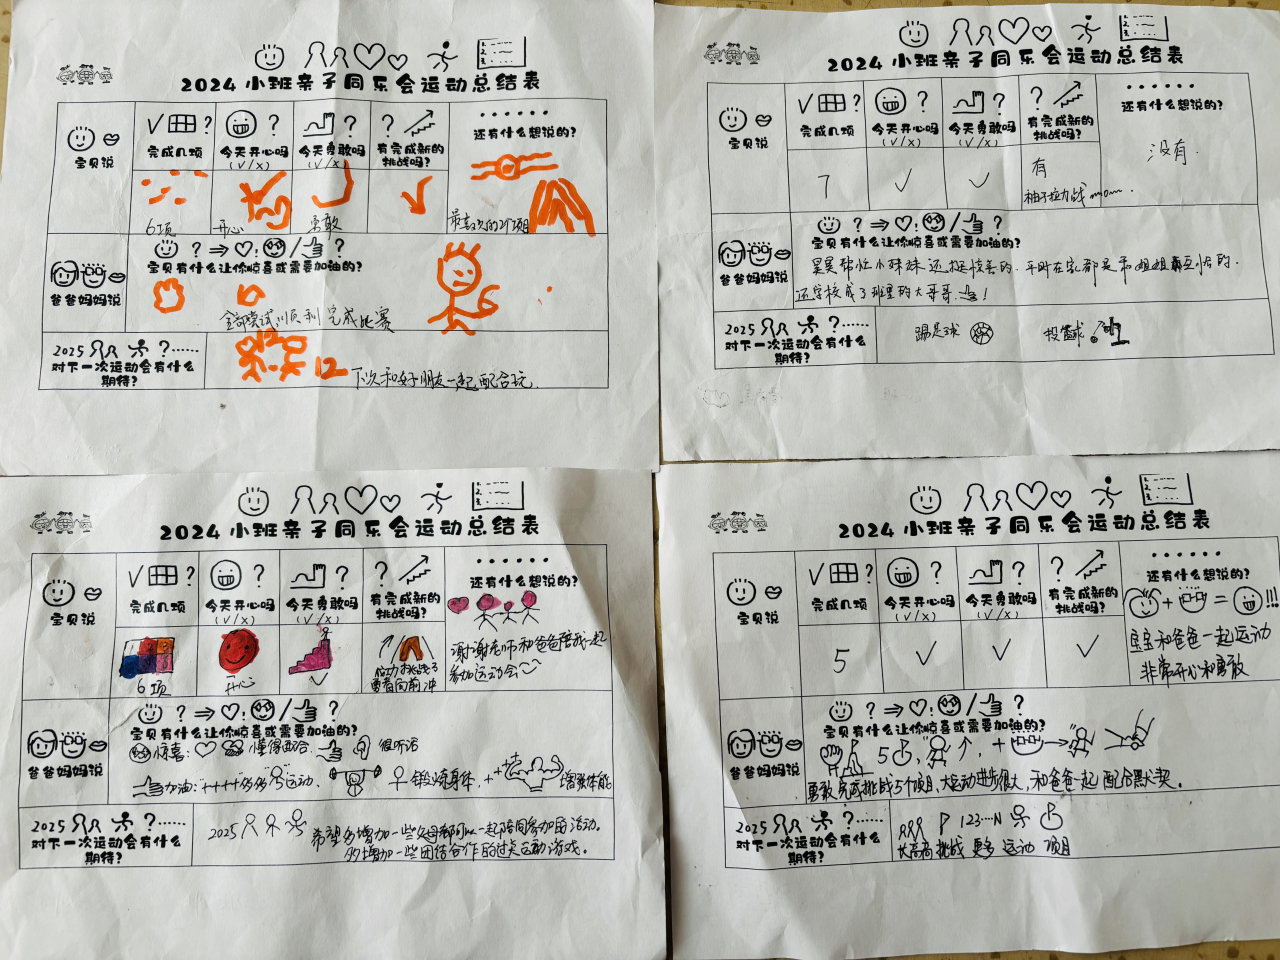 2024小班亲子同乐会运动总结表
宝贝说
√ ?
完成几项
?
今天开心吗
(√/×)
?
今天勇敢吗
(√/×)
?
有完成新的
挑战吗?
······
还有什么想说的?
6项
开心
勇敢
最喜欢的2个项目
爸爸妈妈说
? ⇒ : / ?
宝贝有什么让你惊喜或需要加油的?
全部尝试,顺利完成比赛
2025 ?······
对下一次运动会有什么
期待?
12
12
下次和好朋友一起配合玩.
2024小班亲子同乐会运动总结表
宝贝说
√ ?
完成几项
?
今天开心吗
(√/×)
?
今天勇敢吗
(√/×)
?
有完成新的
挑战吗?
······
还有什么想说的?
7
√
√
有
袖子拉力战
没有.
爸爸妈妈说
? ⇒ : / ?
宝贝有什么让你惊喜或需要加油的?
昊昊帮忙小妹妹还挺惊喜的.平时在家都是和姐姐互怼的.
还学校成了班里的大哥哥. !
2025 ?······
对下一次运动会有什么
期待?
踢足球
投篮球
2024小班亲子同乐会运动总结表
宝贝说
√ ?
完成几项
?
今天开心吗
(√/×)
?
今天勇敢吗
(√/×)
?
有完成新的
挑战吗?
······
还有什么想说的?
6项
开心
√
挑战了
勇者向前冲
谢谢老师和爸爸陪我一起
参加运动会~~
爸爸妈妈说
? ⇒ : / ?
宝贝有什么让你惊喜或需要加油的?
惊喜: 懂得配合. 很听话
加油:++++多多运动、 锻炼身体, ++ 增强体能
2025 ?······
对下一次运动会有什么
期待?
2025 希望多增加一些父母都可以一起陪同参加的活动.
多增加一些团结合作的过关运动游戏。
2024小班亲子同乐会运动总结表
宝贝说
√ ?
完成几项
?
今天开心吗
(√/×)
?
今天勇敢吗
(√/×)
?
有完成新的
挑战吗?
······
还有什么想说的?
5
√
√
√
+ = !!!
宝宝和爸爸一起运动
非常开心和勇敢
爸爸妈妈说
? ⇒ : / ?
宝贝有什么让你惊喜或需要加油的?
5 , ↑, + →
勇敢完成挑战5个项目,大运动进步很大,和爸爸一起配合默契。
2025 ?······
对下一次运动会有什么
期待?
123…N
长高高挑战 更多 运动 项目